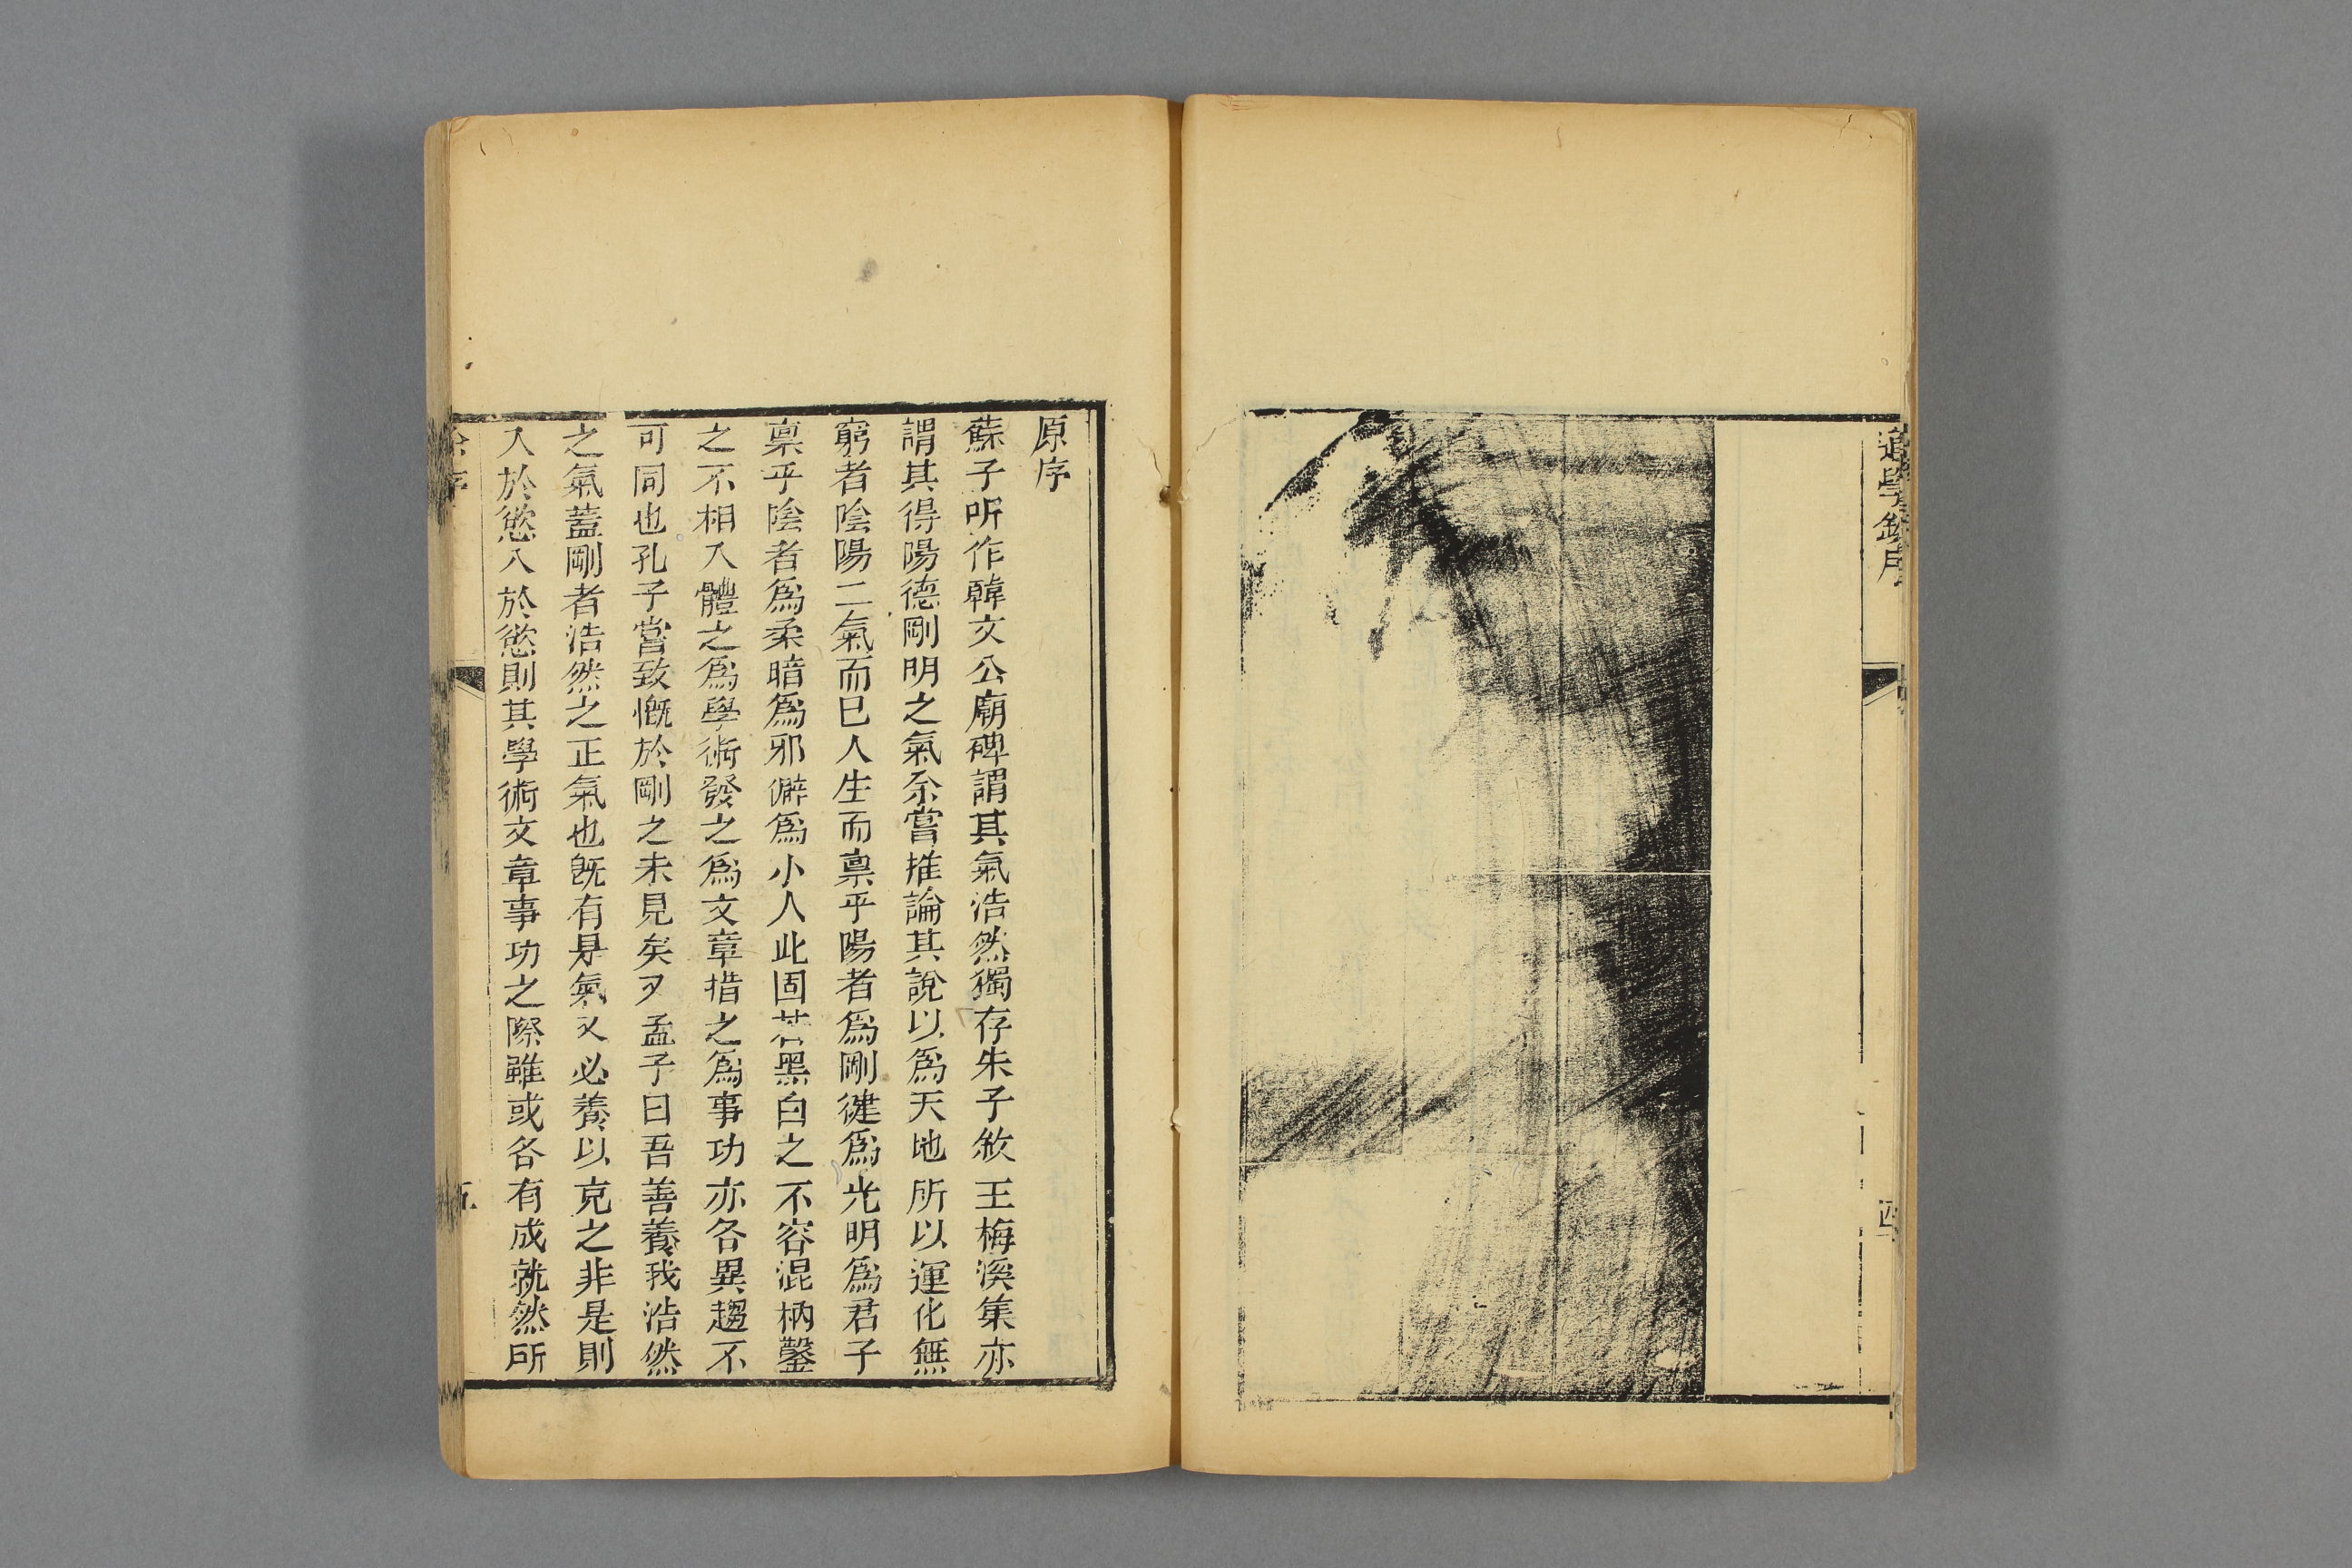 道學
四
原序
蘇子所作韓文公廟碑謂其氣浩然獨存朱子敘王梅溪集亦
謂其得陽德剛明之氣余嘗推論其說以爲天地所以運化無
窮者陰陽二氣而已人生而禀乎陽者爲剛健爲光明爲君子
禀乎陰者爲柔暗爲邪僻爲小人此固若黑白之不容混枘鑿
之不相入體之爲學術發之爲文章措之爲事功亦各異趨不
可同也孔子嘗致慨於剛之未見矣又孟子曰吾善養我浩然
之氣蓋剛者浩然之正氣也既有是氣又必養以克之非是則
入於慾入於慾則其學術文章事功之際雖或各有成就然所
序
五